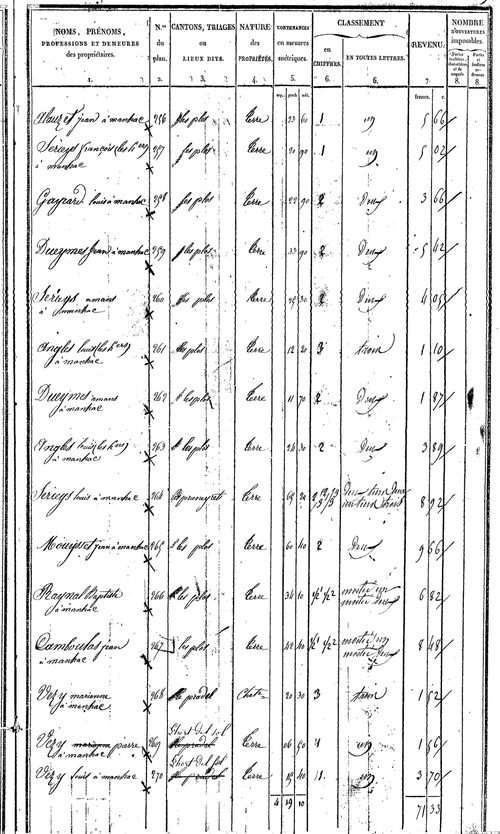 NOMS, PRÉNOMS,
PROFESSIONS ET DEMEURES
des propriétaires.
1.
N.os
du
plan.
2.
CANTONS, TRIAGES
ou
LIEUX DITS.
3.
NATURE
des
PROPRIÉTÉS.
4.
CONTENANCES
en mesures
métriques.
5.
CLASSEMENT
en
CHIFFRES.
6.
EN TOUTES LETTRES.
6.
REVENU
7.
NOMBRE
D'OUVERTURES
imposables.
8.
8.
francs. c.
jean à manhac 256 les plos Terre 23 60 1 un 5 66
Serieys françois (les hers) 257 les plos Terre 20 90 1 un 5 02
à manhac
Gayrard louis à manhac 258 les plos Terre 22 90 2 Deux 3 66
jean à manhac 259 les plos Terre 33 90 2 Deux 5 42
Serieys amans 260 les plos Terre 25 30 2 Deux 4 05
à manhac
Angles louis (les hers) 261 les plos Terre 12 20 3 trois 1 10
à manhac
amans 262 les plos Terre 11 70 2 Deux 1 87
à manhac
Angles louis (les hers) 263 les plos Terre 24 30 2 Deux 3 89
à manhac
Serieys louis à manhac 264 Terre 8 92
Mouysset jean à manhac 265 les plos Terre 60 40 2 Deux 9 66
Raynal Baptiste 266 les plos Terre 34 10 1/2 1 1/2 2 moitié un
à manhac moitié deux 6 82
Damboulas jean 267 les plos Terre 42 40 1/2 1 1/2 2 moitié un
à manhac moitié deux 8 48
Very marianne 268 le pradel 20 30 3 trois 1 52
à manhac
Very pierre 269 Terre 06 50 1 un 1 56
à manhac
Very louis à manhac 270 Terre 15 40 1 un 3 70
4 19 10 71 33